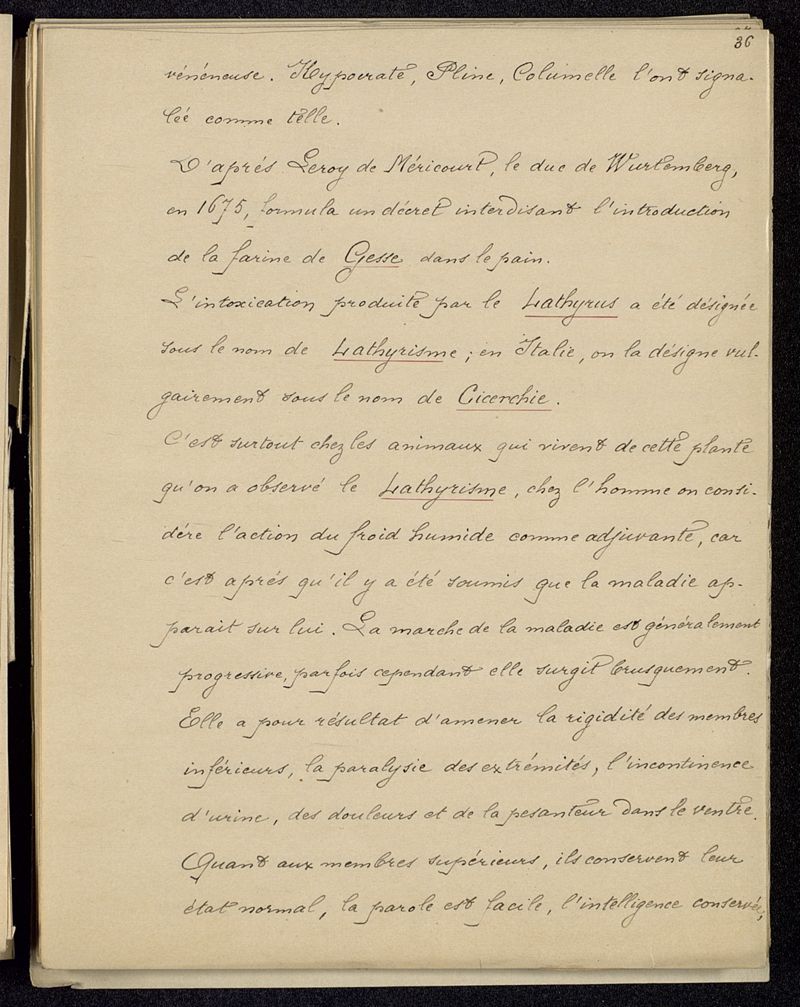 36
vénéneuse. Hypocrate, Pline, Columelle l'ont signa-
lée comme telle.
D'aprés Leroy de Méricourt, le duc de Wurtemberg,
en 1675, formula un décret interdisant l'introduction
de la farine de Gesse dans le pain.
L'intoxication produite par le Lathyrus a été désignée
sous le nom de Lathyrisme; en Italie, on la désigne vul-
gairement sous le nom de Cicerchie.
C'est surtout chez les animaux qui vivent de cette plante
qu'on a observé le Lathyrisme, chez l'homme on consi-
dére l'action du froid humide comme adjuvante, car
c'est aprés qu'il y a été soumis que la maladie ap-
parait sur lui. La marche de la maladie est généralement
progressive, parfois cependant elle surgit brusquement.
Elle a pour résultat d'amener la rigidité des membres
inférieurs, la paralysie des extrémités, l'incontinence
d'urine, des douleurs et de la pesanteur dans le ventre.
Quant aux membres supérieurs, ils conservent leur
état normal, la parole est facile, l'intelligence conservée,